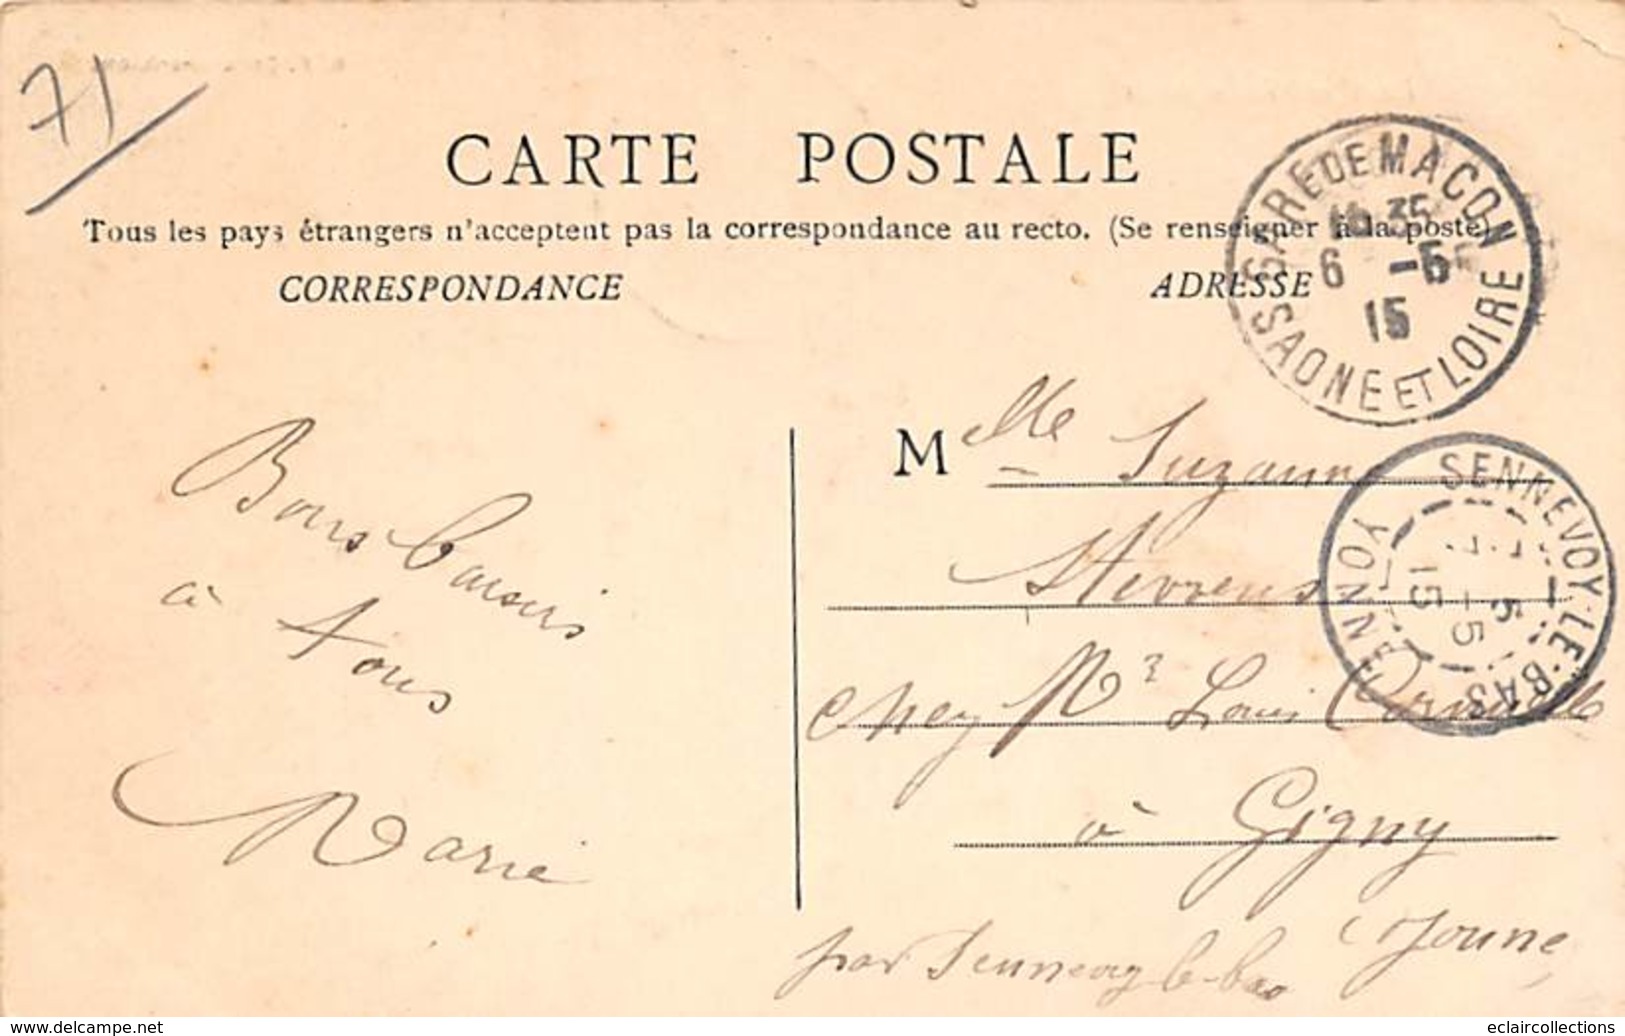 71
CARTE POSTALE
Tous les pays étrangers n'acceptent pas la correspondance au recto. (Se renseigner à la poste)
CORRESPONDANCE
ADRESSE
GARE DE MACON
16 35
6 -5
15
SAONE ET LOIRE
SENNEVOY-LE-BAS
7 -5
15
YONNE
Bons baisers
à tous
Marie
Mlle Suzanne
chez Mr Louis
à Gigny
Yonne
par Sennevoy le-bas
www.delcampe.net
eclaircollections